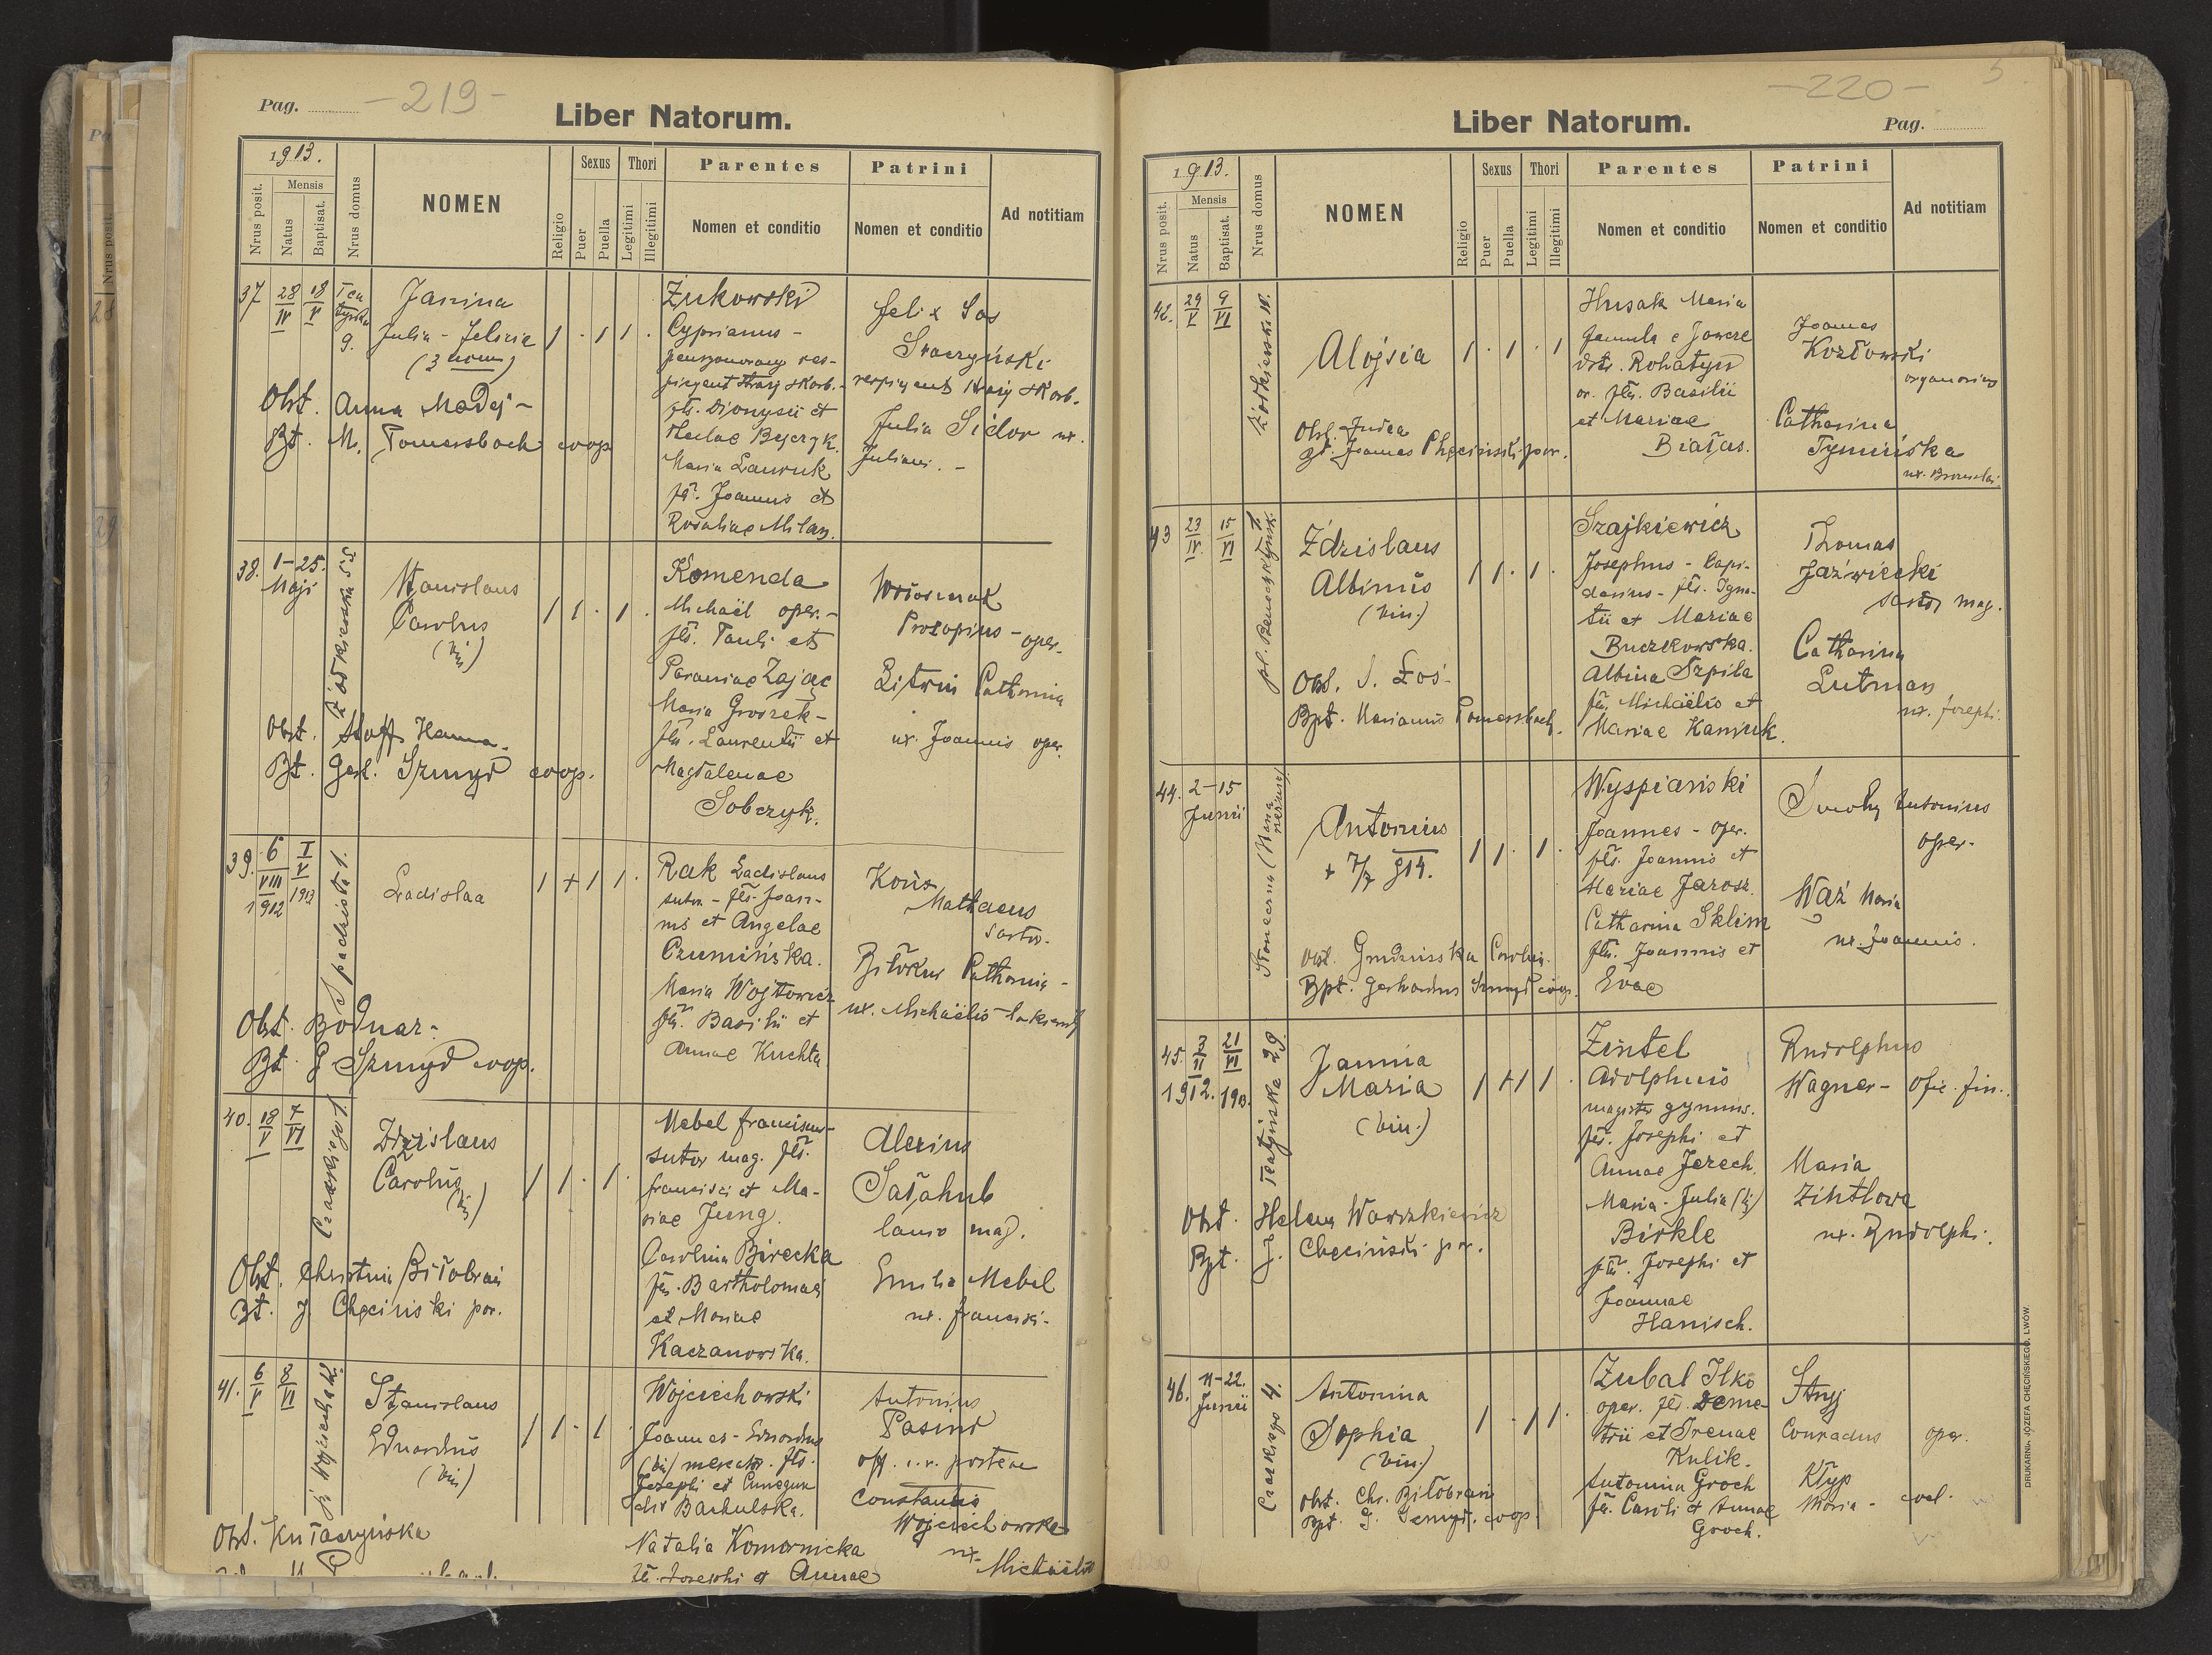 Pag. -219-
Liber Natorum.
1913.
Nrus posit.
Mensis
Natus
Baptisat.
Nrus domus
NOMEN
Religio
Sexus
Puer
Puella
Thori
Legitimi
Illegitimi
Parentes
Nomen et conditio
Patrini
Nomen et conditio
Ad notitiam
37 28/IV 18/V
9.
Janina
Julia - Felicia
(3 nom)
1 . 1 1 .
Obst. Anna Madej -
Bt. M. Tomersbach coop
Żukowski
Cyprianus -
pensyonowany res-
picyent straży skarb. -
fil. Dionysii et
Maria Lawruk
fil. Joannis et
Rosaliae Milan.
Felix Sas
respicyent straży skarb.
Julia Sidor ux.
Juliani. -
38. 1-25.
Maji
Żółkiewska 53
Stanislaus
Carolus
(bin)
1 1 . 1 .
Obst. Stoff Hanna.
Bt. Ger. Szmyd coop.
Komenda
Michaël oper. -
fil. Pauli et
Paraniae Zając
Maria Groszek -
fil. Laurentii et
Magdalenae
Sobczyk.
Prokopius - oper.
Litwin Catharina
ux. Joannis oper.
39. 6/VIII 1912 I/V 1913
Ladislaa
1 + 1 1 .
Obst. Bodnar -
Bt. G Szmyd coop.
Rak Ladislaus
sutor - fil. Joan-
nis et Angelae
Czumińska.
Maria Wojtowicz
fil. Basilii et
Annae Kuchta
Koűs
Mathaeus
sartor.
Catharina -
ux. Michaëlis
40. 18/V 7/VI
Czackiego 1
Zdzislaus
Carolus
(bin)
1 1 . 1 .
Obst. Christina Biłobran
Bt. J. Chęciński par.
Mebel Franciscus -
sutor mag. fil.
Francisci et Ma-
riae Jung.
Carolina Birecka
fil. Bartholomaei
et Mariae
Kaczanowska.
Alexius
Sałahub
lanio mag.
Emilia Mebel
ux. Francisci -
41. 6/V 8/VI
Stanislaus
Eduardus
(bin)
1 1 - 1
Obst. Kułaczyńska
Wojciechowski
Joannes - Eduardus
(bin) mercator. fil.
Josephi et Cunegun
dis Bachulska.
Natalia Komornicka
fil. Josephi et Annae
Antonius
off. c. r. postae
Constantia
Wojciechowska
ux. Michaëlis
-220- 5
Liber Natorum.
Pag.
1913.
Nrus posit.
Mensis
Natus
Baptisat.
Nrus domus
NOMEN
Religio
Sexus
Puer
Puella
Thori
Legitimi
Illegitimi
Parentes
Nomen et conditio
Patrini
Nomen et conditio
Ad notitiam
42. 29/V 9/VI
Alojsia
1 . 1 . 1
Obst. Judea
Bt. Joannes Chęciński par.
Husak Maria
famula e Jawcze
dstr. Rohatyn
or. fil. Basilii
et Mariae
Białas.
Joannes
Kozłowski
organarius
Catharina
Tymińska
ux. Bronislai
43 23/IV 15/VI
Zdzislaus
Albinus
(bin.)
1 1 . 1 .
Obst. S. Łoś -
Bpt. Marianus Tomersbach.
Szajkiewicz
Josephus - lapi-
darius - fil. Igna-
tii et Mariae
Buczkowska.
Albina Szpila
fil. Michaëlis et
Mariae Kaniuk.
Thomas
Jaźwiecki
sartor mag.
Catharina
Lutman
ux. Josephi.
44. 2-15
Junii
Antonius
+ 7/7 914.
1 1 . 1 .
Obst. Carolina.
Bpt. Gerhardus Szmyd coop.
Wyspiański
Joannes - oper.
fil. Joannis et
Mariae Jarosz.
Catharina Sklim
fil. Joannis et
Evae
Antonius
oper -
Waż Maria
ux. Joannis.
45. 3/VI 1912. 21/VI 1913.
Teatyńska 29.
Janina
Maria
(bin.)
1 + 1 1 .
Obst. Helena Wawrzkiewicz
Bpt. J. Chęciński par.
Zintel
Adolphus
magister gymnas.
fil. Josephi et
Annae Jerech.
Maria - Julia (bin)
Birkle
fil. Josephi et
Joannae
Hanisch.
Rudolphus
Wagner - ofic. fin.
Maria
Zintlowa
ux. Rudolphi.
46. 11-22.
Junii
Czackiego 4.
Antonina
Sophia
(bin.)
1 . 1 1 .
Obst. Chr. Biłobran
Bpt. G. Szmyd. coop.
Zubal Ilko
oper. fil. Deme-
trii et Irenae
Kulik.
Antonina Groch
fil. Caroli et Annae
Groch.
Stryj
Conradus oper.
Kłyp
Maria - coel.
DRUKARNIA JÓZEFA CHĘCIŃSKIEGO, LWÓW.